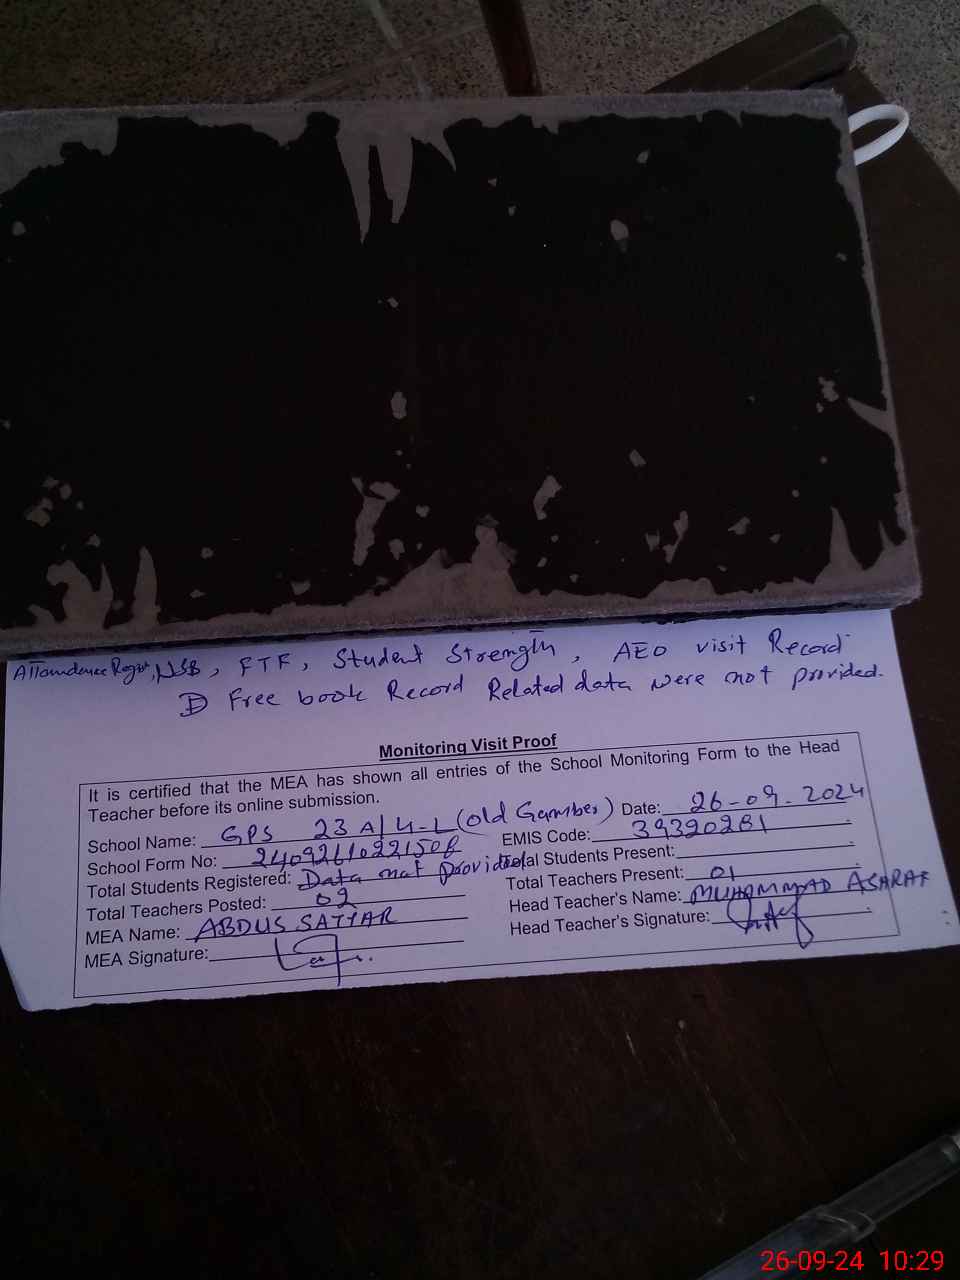 Attamdance Regst, NSB, FTF, Student Strength, AEO visit Record
D Free book Record Related data were not provided.
Monitoring Visit Proof
It is certified that the MEA has shown all entries of the School Monitoring Form to the Head
Teacher before its online submission.
School Name: GPS 23 A/4-L (old Gamber) Date: 26-09-2024
School Form No: EMIS Code: 39320281
Total Students Registered: Data not provided Total Students Present:
Total Teachers Posted: 02 Total Teachers Present: 01
MEA Name: ABDUS SATTAR Head Teacher's Name: MUHAMMAD ASARAF
MEA Signature: Head Teacher's Signature:
26-09-24 10:29